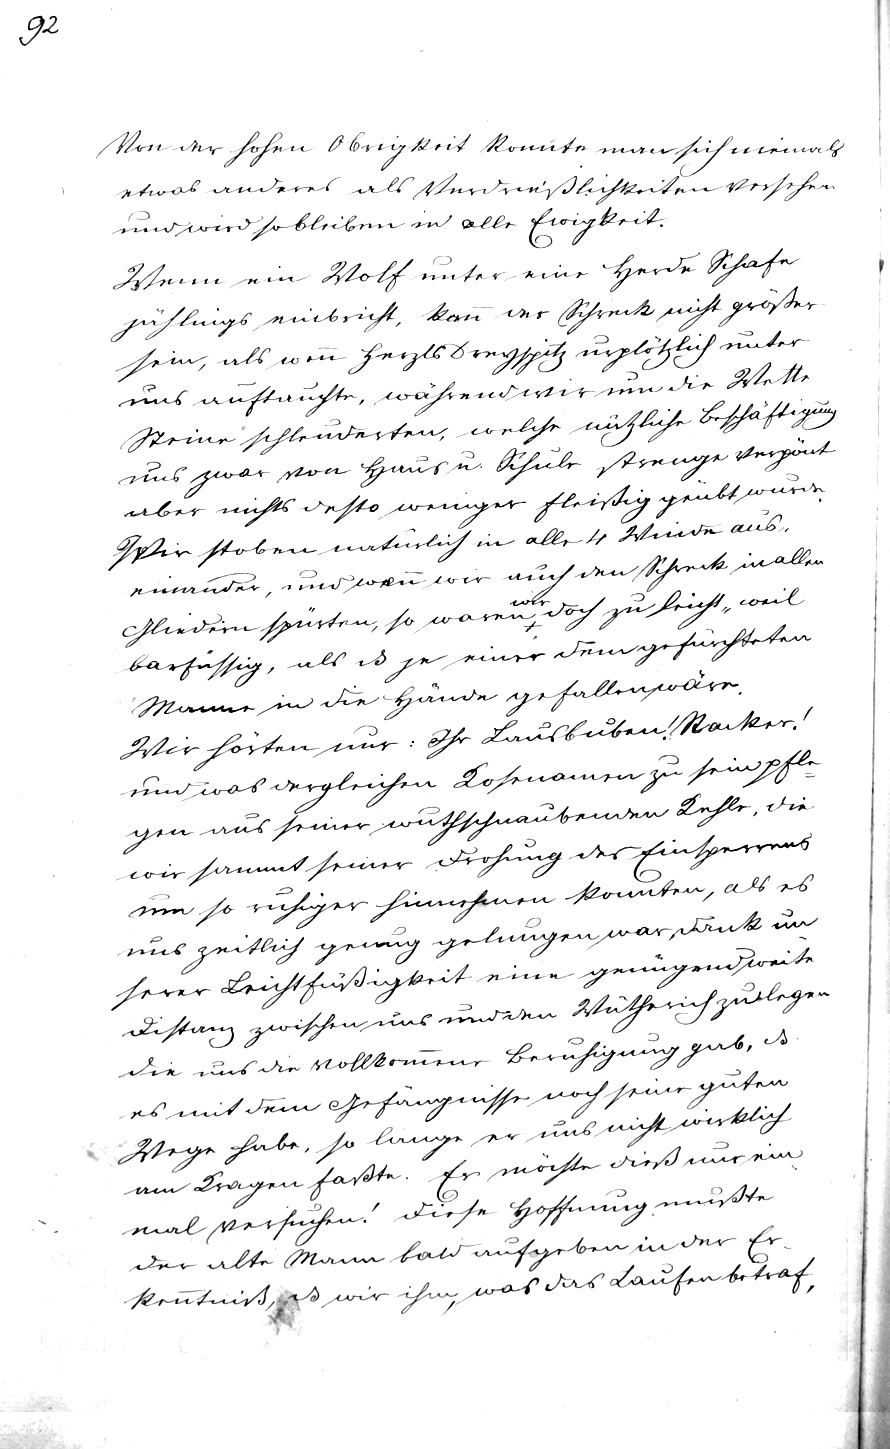 92
Von der hohen Obrigkeit konnte man sich niemals
etwas anderes als Verdrießlichkeiten versehen
und wird so bleiben in alle Ewigkeit.
Wenn ein Wolf unter eine Herde Schafe
jählings einbricht, kan̄ der Schreck nicht größer
sein, als wen̄ Herzls Dreyspitz urplötzlich unter
uns auftauchte, während wir um die Wette
Steine schleuderten, welche nützliche Beschäftigung
uns zwar von Haus u. Schule strenge verpönt
aber nichts desto weniger fleißig geübt wurde.
Wir stoben natürlich in alle 4 Winde aus-
einander, und wen̄ wir auch den Schreck in allen
Gliedern spürten, so waren wir doch zu leicht, weil
barfüssig, als ds je einer dem gefürchteten
Manne in die Hände gefallen wäre.
Wir hörten nur: Ihr Lausbuben! Racker!
und was dergleichen Kosenamen zu sein pfle-
gen aus seiner wuthschnaubenden Kehle, die
wir sammt seiner Drohung des Einsperrens
um so ruhiger hinnehmen konnten, als es
uns zeitlich genug gelungen war, Dank un
serer Leichtfüßigkeit eine genügend weite
Distanz zwischen uns und den Wütherich zu legen
die uns die vollkom̄ene Beruhigung gab, ds
es mit dem Gefängnisse noch seine guten
Wege habe, so lange er uns nicht wirklich
am Kragen faßte. Er möchte dieß nur ein
mal versuchen! Diese Hoffnung mußte
der alte Mann bald aufgeben in der Er-
ken̄tniß, ds wir ihm, was das Laufen betraf,